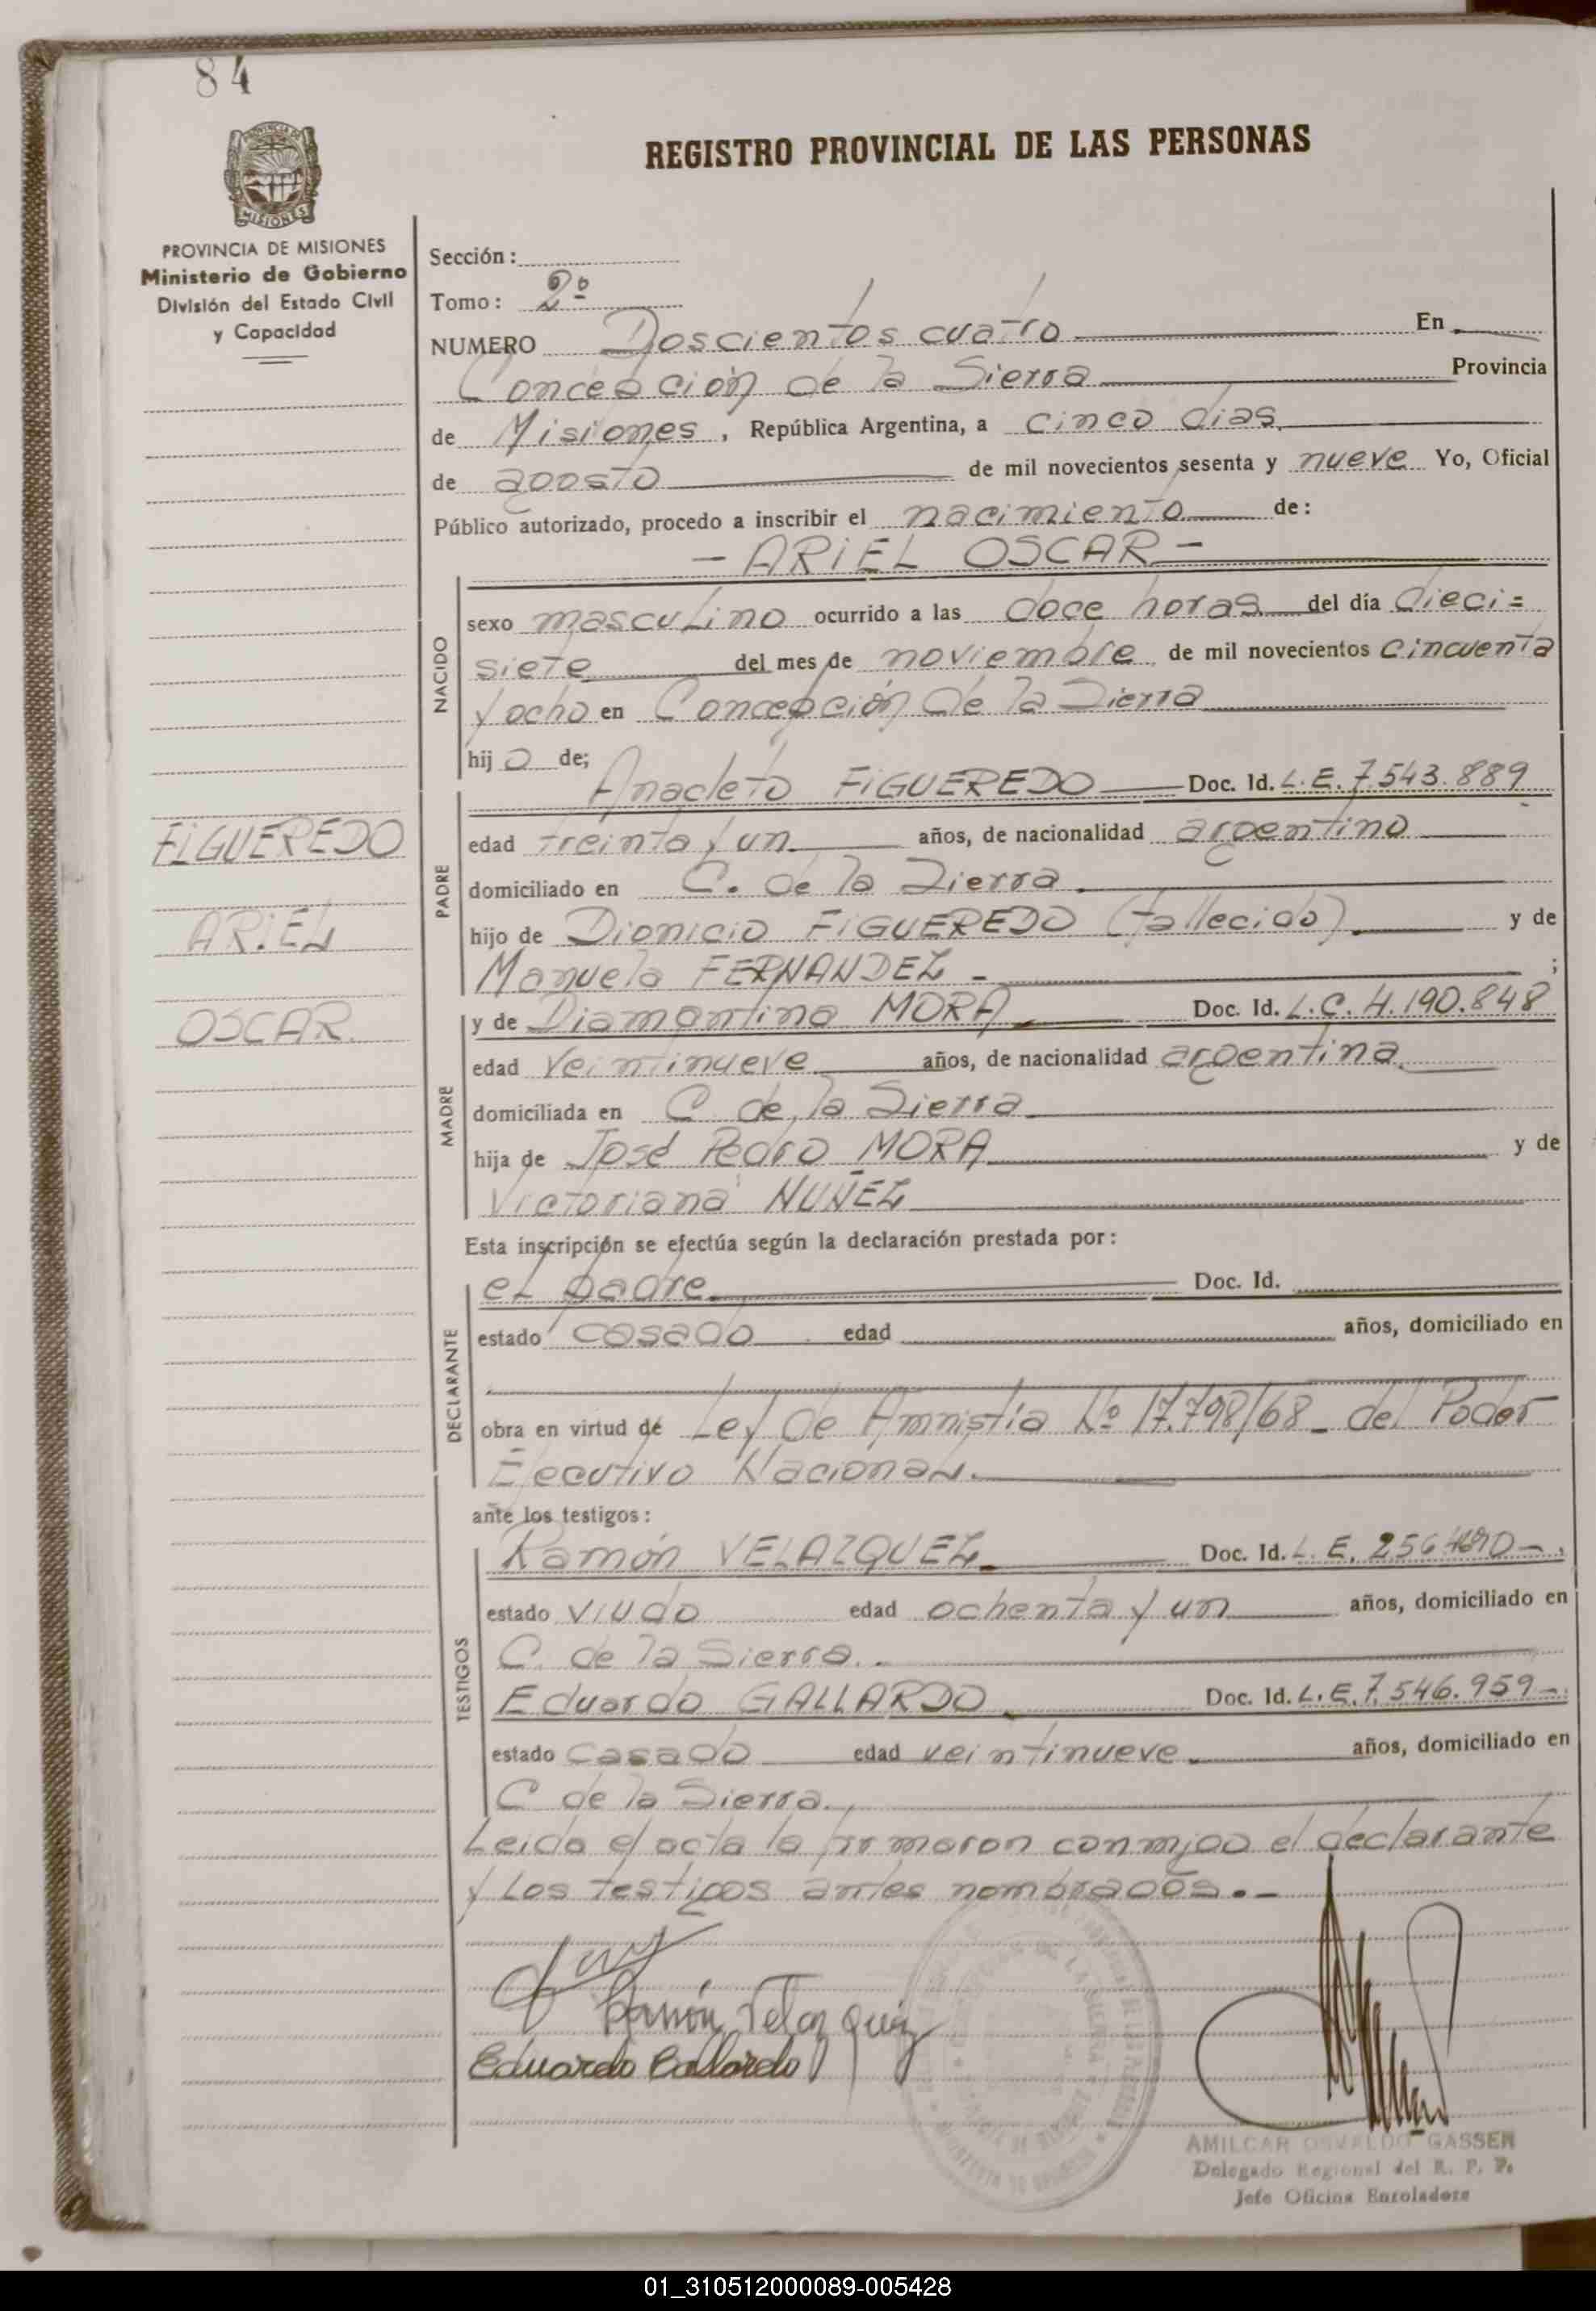 84
PROVINCIA DE MISIONES
Ministerio de Gobierno
División del Estado Civil
y Capacidad
REGISTRO PROVINCIAL DE LAS PERSONAS
Sección:
Tomo: 2º
NUMERO Doscientos cuatro En
Concepción de la Sierra Provincia
de Misiones, República Argentina, a cinco dias
de agosto de mil novecientos sesenta y nueve Yo, Oficial
Público autorizado, procedo a inscribir el nacimiento de:
- ARIEL OSCAR -
NACIDO
sexo masculino ocurrido a las doce horas del día dieci=
siete del mes de noviembre de mil novecientos cincuenta
y ocho en Concepción de la Sierra
hijo de;
Anacleto FIGUEREDO Doc. Id. L.E. 7.543.889
PADRE
edad treinta y un años, de nacionalidad argentino
domiciliado en C. de la Sierra
hijo de Dionicio FIGUEREDO (fallecido) y de
Manuela FERNANDEZ - ;
FIGUEREDO
ARIEL
OSCAR.
MADRE
y de Diamantina MORA Doc. Id. L.C. 4.190.848
edad veintinueve años, de nacionalidad argentina
domiciliada en C de la Sierra
hija de José Pedro MORA y de
Victoriana NUÑEZ
Esta inscripción se efectúa según la declaración prestada por:
DECLARANTE
el padre Doc. Id.
estado casado edad años, domiciliado en
obra en virtud de Ley de Amnistía Nº 17.798/68 - del Poder
Ejecutivo Nacional.
ante los testigos:
TESTIGOS
Ramón VELAZQUEZ Doc. Id. L.E.
estado viudo edad ochenta y un años, domiciliado en
C. de la Sierra.
Eduardo GALLARDO Doc. Id. L.E. 7.546.959-.
estado casado edad veintinueve años, domiciliado en
C de la Sierra.
Leida el acta la firmaron conmigo el declarante
y los testigos antes nombrados.-
Ramón Velazquez
Eduardo Gallardo
AMILCAR OSVALDO GASSEN
Delegado Regional del R. P. P.
Jefe Oficina Enroladora
01_310512000089-005428